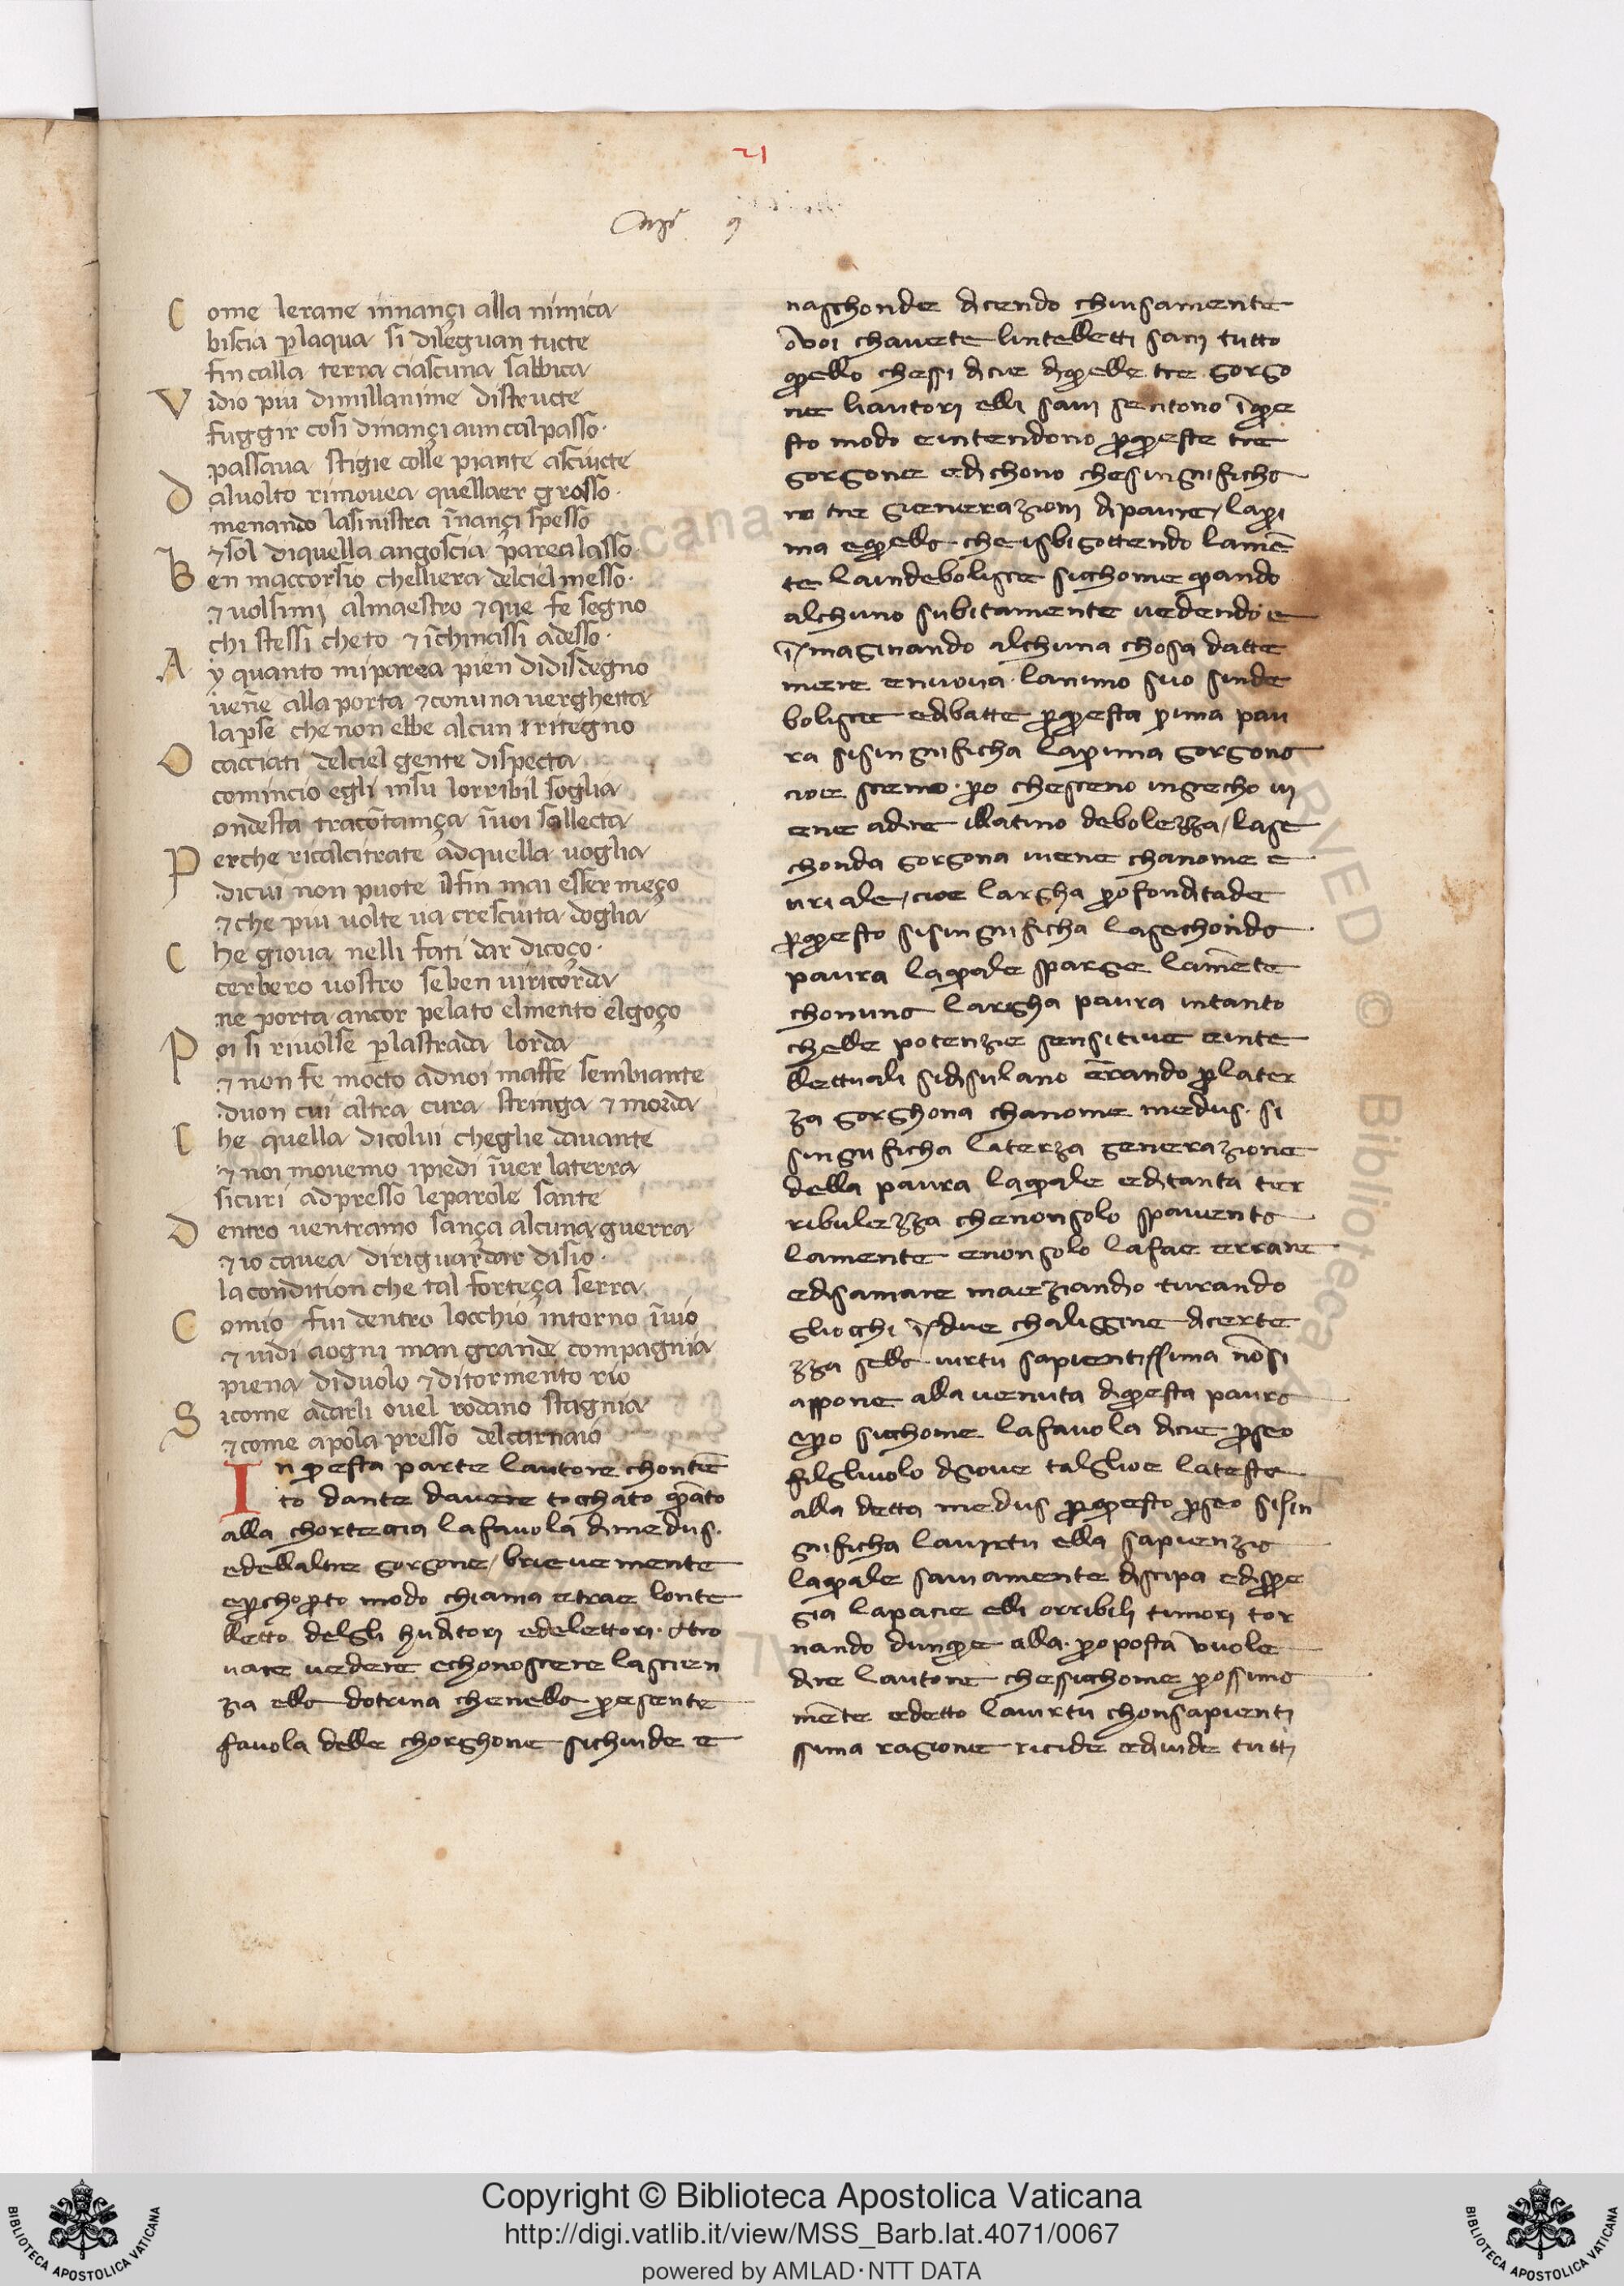 21
Capo 9
Come lerane innançi alla nimica
biscia p̲laqua si dileguan tucte
fin calla terra ciascuna sabbica
Vidio piu dimillanime distructe
fuggir cosi dinançi aun calpasso·
passaua stigie colle piante asciucte
Daluolto rimouea quellaer grosso·
menando lasinistra īnançi spesso
⁊sol diquella angoscia parealasso·
Ben maccorsio chelliera delciel messo·
⁊ uolsimi almaestro ⁊ que fe segno
chi stessi cheto ⁊ īchinassi adesso·
Ay quanto mi parea pien didisdegno
uēne alla porta ⁊ conuna verghetta
lap̲se che non ebbe alcun ritegno
O cacciati delciel gente dispecta
comincio egli insu lorribil soglia
ondesta tracotança īuoi sallecta
Perche ricalcitrate adquella uoglia
dicui non puote ilfin mai esser moço
⁊ che piu uolte ua cresciuta doglia
Che gioua nelli fati dar dicoço·
cerbero uostro seben uiricorda
ne porta ancor pelato elmento elgoço
Poi si riuolse p̲lastrada lorda
⁊ non fe mocto adnoi maffe sembiante
duon cui altra cura stringa ⁊ morda
Che quella dicolui cheglie dauante
⁊ noi mouemo ipiedi īuer laterra
sicuri adpresso leparole sante
Dentro uentramo sança alcuna guerra
⁊ io cauea diriguardar disio·
la condition che tal forteça serra
Comio fui dentro locchio intorno īuio
⁊ uidi aogni man grande compagnia
piena diduolo ⁊ ditormento rio
Sicome adarli ouel rodano stagnia
⁊ come apola presso delcarnaio
In questa parte lautore chontē
to dante dauere tocchato q̄nto
alla chorteccia lafauola dimedus·
edellaltre gorgone / brieue mente
modo chiama etrae lonte
lletto delgli huditori edelettori·
uare uedere echonoscere lascien
za ella dotrina chenella presente
fauola delle chorghone sichiude e
naschonde dicendo chiusamente
o voi chauete lintelletti sani tutto
quello chessi dicie diquelle tre gorgo
ne liautori elli saui sentono īque
sto modo eintendono p̲queste tre
gorgone edichono chesingnificho
no tre gienerazioni dipaure / lapri
ma equella che isbigottendo lamē
te laindebolisce sicchome quando
alchuno subitamente uedendo e
īmaginando alchuna chosa datte
mere enuoua lanimo suo sinde
bolisce edibatte p̲questa prima pau
ra sisingnificha laprima gorgona
cioe steno· pero chesteno ingrecho ui
ene adire illatino debolezza / lase
chonda gorgona uiene chanome e
uriale / cioe largha profonditade
p̲questo sisingnificha lasechonda
paura laquale sparge lamēte
chonuna largha paura intanto
chelle potenzie sensitiue einte
llettuali sidisulano ērando p̲later
za gorghona chanome medus· si
singnificha laterza generazione
della paura laquale editanta ter
ribulezza chenonsolo spauenta
lamente enonsolo lafae errare
edisamare maeziandio turando
gliocchi īdue chaliggine dicerte
zza sella uirtu sapientissima nōsi
appone alla uenuta diquesta paura
epero sicchome lafauola dicie p̲seo
filgliuolo digioue talglioe latesta
alla detta medus p̲questo p̲seo sisin
gnificha lauirtu ella sapienzia
laquale sauiamente discipa edispre
gia lapacie elli orribili timori tor
nando dunque alla· proposta vuole
dire lautore chessicchome prossima
mēte edetto lauirtu chonsapienti
ssima ragione ricide ediuide tutti
Copyright © Biblioteca Apostolica Vaticana
http://digi.vatlib.it/view/MSS_Barb.lat.4071/0067
powered by AMLAD·NTT DATA
BIBLIOTECA APOSTOLICA VATICANA
BIBLIOTECA APOSTOLICA VATICANA